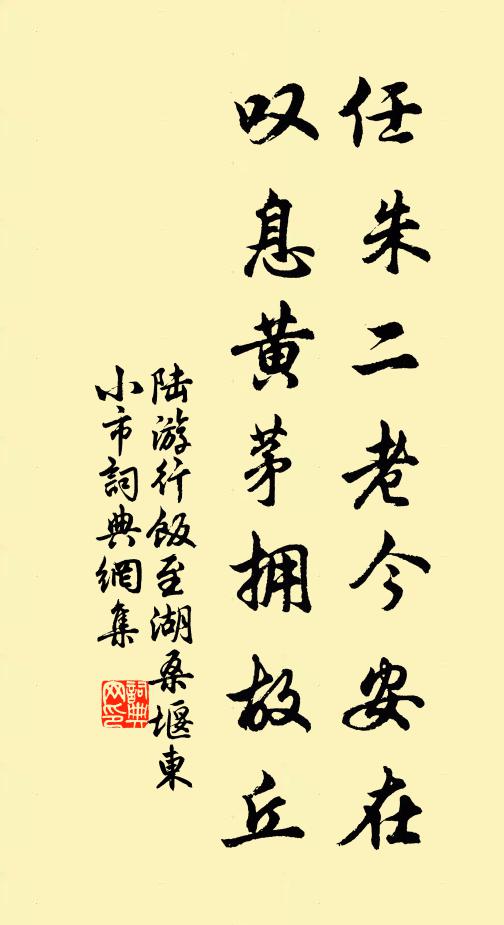 任朱二老今安在
叹息黄茅拥故丘
陆游行饭至湖桑堰東
小市詞典網集
詞典网印